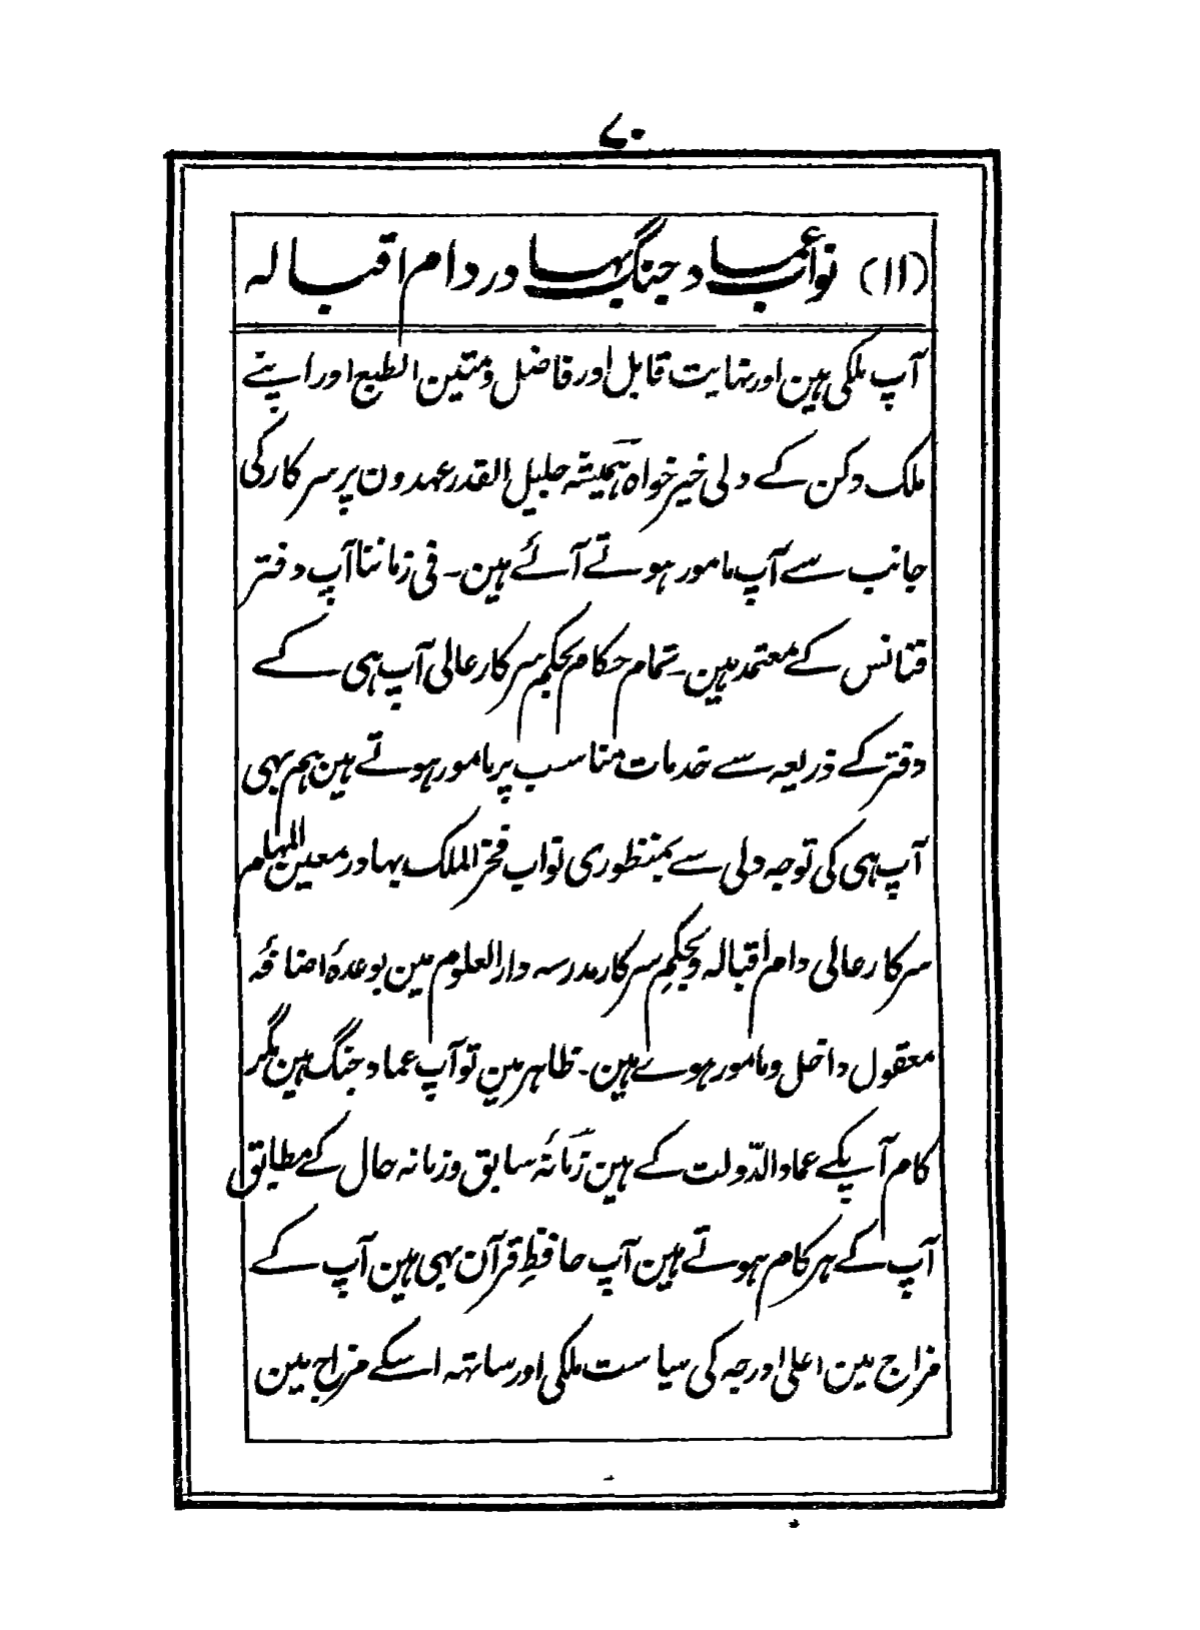 ۷۰
(۱۱) نواب عماد جنگ بہادر دام اقبالہ
آپ ملکی ہین اور نہایت قابل اور فاضل و متین الطبع اور اپنے
ملک دکن کے دلی خیر خواہ ہمیشہ جلیل القدر عہدون پر سرکار کی
جانب سے آپ مامور ہوتے آئے ہین۔ فی زماننا آپ دفتر
فنانس کے معتمد ہین۔ تمام حکام بحکم سرکار عالی آپ ہی کے
دفتر کے ذریعہ سے خدمات مناسب پر مامور ہوتے ہین ہم بہی
آپ ہی کی توجہ دلی سے بمنظوری نواب فخر الملک بہادر معین المہام
سرکار عالی دام اقبالہ و بحکمِ سرکار مدرسہ دار العلوم مین بوعدۂ اضافہ
معقول داخل و مامور ہوے ہین۔ ظاہر مین تو آپ عماد جنگ ہین مگر
کام آپکے عماد الدّولت کے ہین زمانۂ سابق و زمانہ حال کے مطابق
آپ کے ہر کام ہوتے ہین آپ حافظِ قرآن بہی ہین آپ کے
مزاج مین اعلی درجہ کی سیاست ملکی اور ساتہہ اسکے مزاج مین